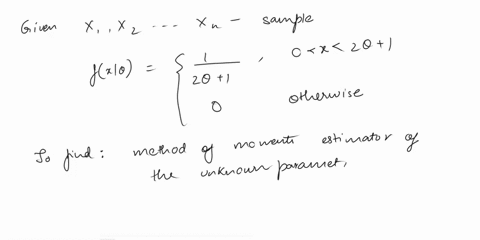 Given X1, X2 --- Xn - sample
f(x|θ) = { 1/(2θ+1) , 0 < x < 2θ+1
0 otherwise
To find: method of moments estimator of
the unknown paramet,